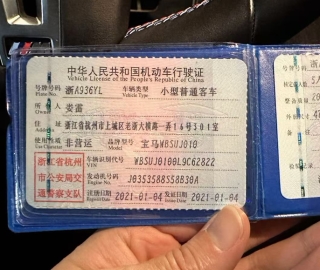 中华人民共和国机动车行驶证
Vehicle License of the People's Republic of China
号牌号码 浙A936YL 车辆类型 小型普通客车
Plate No. Vehicle Type
所有人 娄雷
Owner
住址 浙江省杭州市上城区
Address
使用性质 非营运 品牌型号 宝马WBSUJ010
Use Character Model
浙江省杭州市公安局交通警察支队
车辆识别代号 WBSUJ0100L9C62822
VIN
发动机号码 J0353588S58B30A
Engine No.
注册日期 2021-01-04 发证日期 2021-01-04
Register Date Issue Date